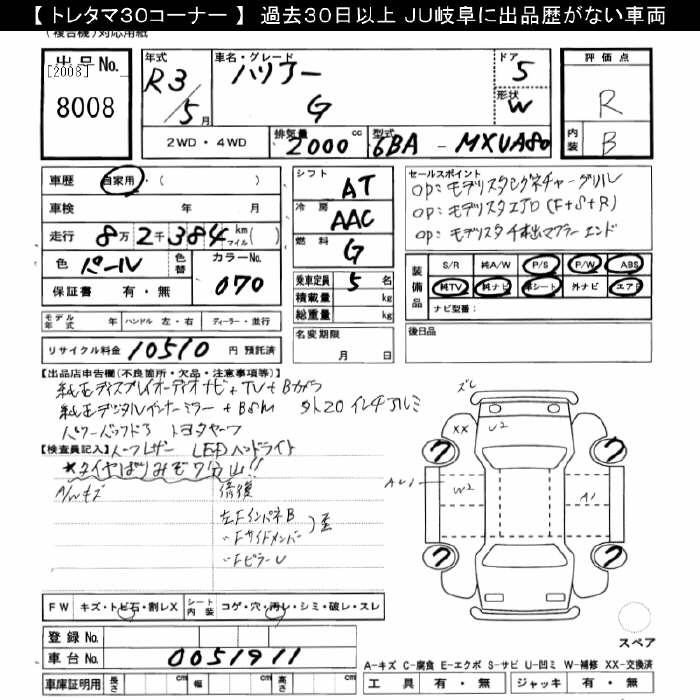 【 トレタマ30コーナー 】 過去30日以上 JU岐阜に出品歴がない車両
(複合機)対応用紙
出品No.
[2008]
8008
年式 R3/5月
車名・グレード ハリアー G
ドア 5
形状 W
評価点 R
内装 B
2WD・4WD
排気量 2000 cc
型式 6BA - MXUA80
車歴 自家用・( )
車検 年 月
走行 8万2千384 km マイル( )
色 パール 色替 カラーNo. 070
保証書 有・無
シフト AT
冷房 AAC
燃料 G
乗車定員 5 名
積載量 kg
総重量 kg
セールスポイント
OP:モデリスタシグネチャーグリル
OP:モデリスタエアロ(F+S+R)
OP:モデリスタ4本出マフラーエンド
装備品 S/R 純A/W P/S P/W ABS
純TV 純ナビ 革シート 外ナビ エアB
ナビ型番:
モデル年式 年 ハンドル 左・右 ディーラー・並行
名変期限 月 日
後日品
リサイクル料金 10510 円 預託済
【出品店申告欄(不良箇所・欠品・注意事項等)】
純正ディスプレイオーディオナビ+TV+Bカメラ
純正デジタルインナーミラー+BSM 20インチアルミ
パワーバックドア
【検査員記入】ハーフレザー LEDヘッドライト
*タイヤばりみぞ7分山!!
A/Wキズ 修復
左Fインパネ B
〃FサイドメンバーI
〃Fピラー U
ズレ
XX
U2
AU1
W2
A1
7
7
7
7
FW キズ・トビ石・割レX シート内装 コゲ・穴・汚レ・シミ・破レ・スレ
登録No.
車台No. 0051911
車庫証明用 長さ cm 幅 cm 高さ cm
スペア
A-キズ C-腐食 E-エクボ S-サビ U-凹ミ W-補修 XX-交換済
工具 有・無 ジャッキ 有・無